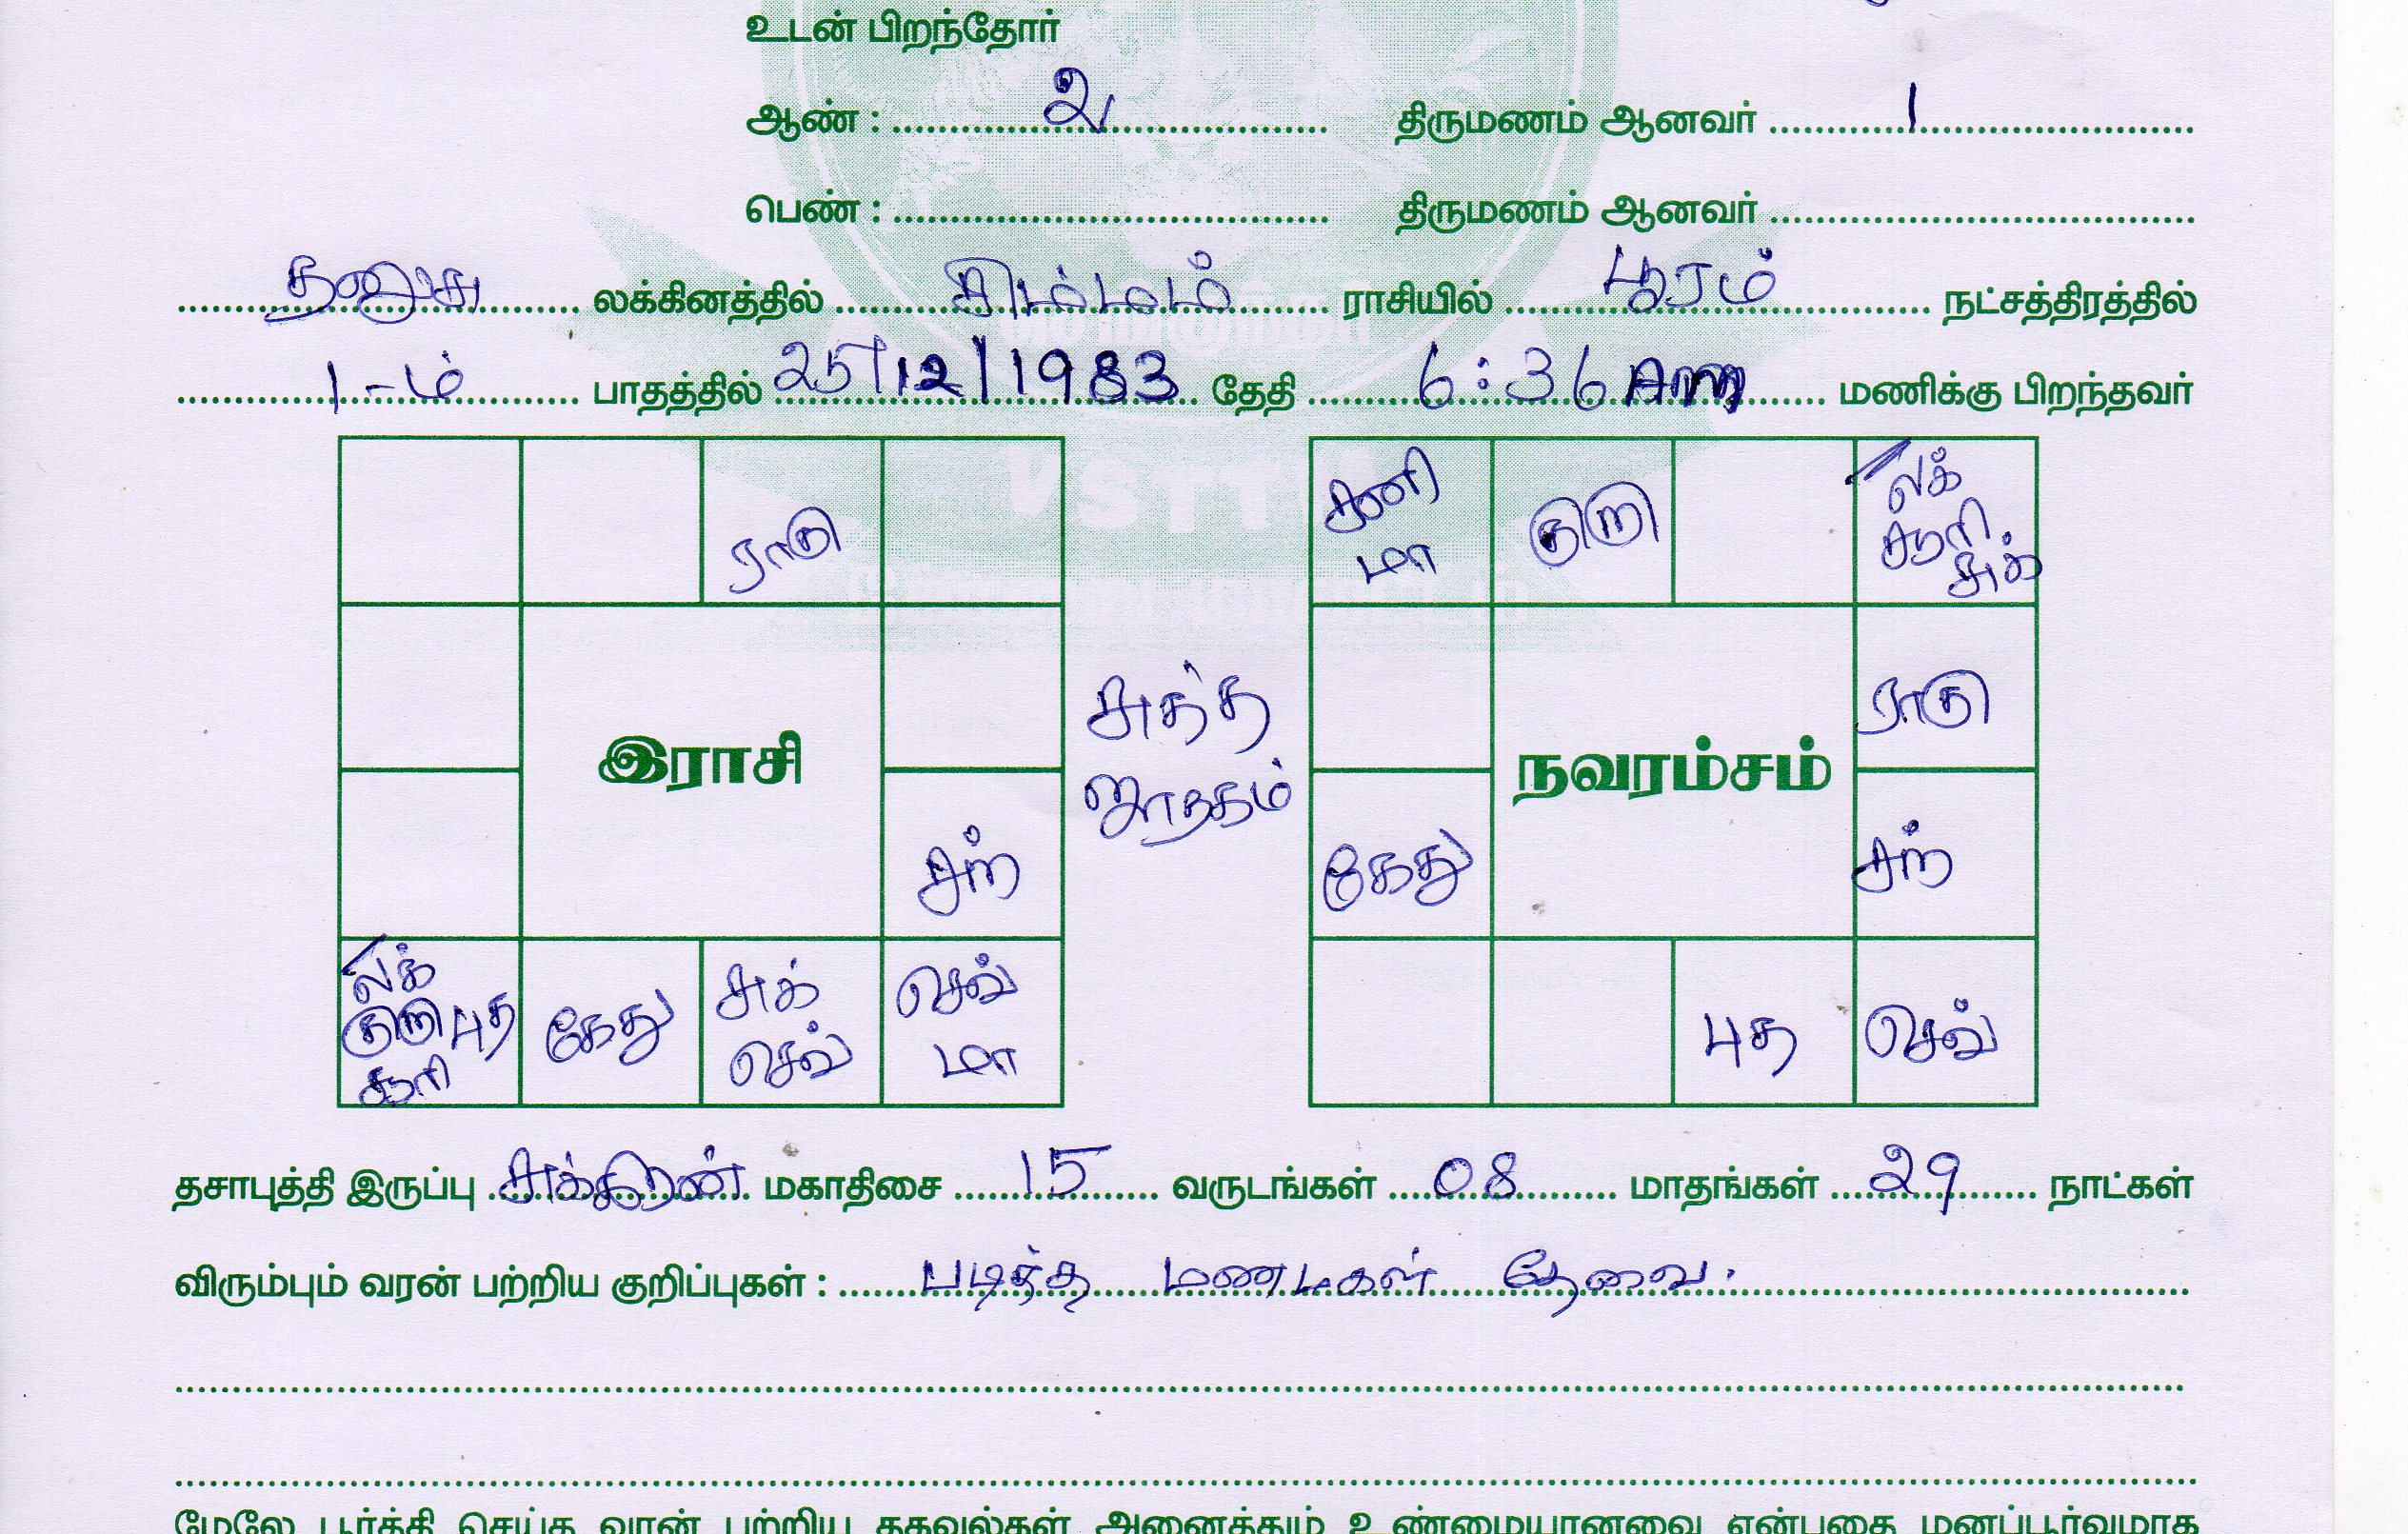 உடன் பிறந்தோர்
ஆண் : 2 திருமணம் ஆனவர் 1
பெண் : திருமணம் ஆனவர்
தனுசு லக்கினத்தில் சிம்மம் ராசியில் பூரம் நட்சத்திரத்தில்
1-ம் பாதத்தில் 25/12/1983 தேதி 6:36 AM மணிக்கு பிறந்தவர்
ராகு
சனி குரு லக்
மா சூரி சுக்
இராசி
சுத்த
ஜாதகம்
சந்
நவரம்சம்
ராகு
கேது சந்
லக் குரு புத சூரி
கேது
சுக் செவ்
மா
புத செவ்
தசாபுத்தி இருப்பு சுக்கிரன் மகாதிசை 15 வருடங்கள் 08 மாதங்கள் 29 நாட்கள்
விரும்பும் வரன் பற்றிய குறிப்புகள் : படித்த மணமகள் தேவை.
மேலே பூர்த்தி செய்த வரன் பற்றிய தகவல்கள் அனைத்தும் உண்மையானவை என்பதை மனப்பூர்வமாக